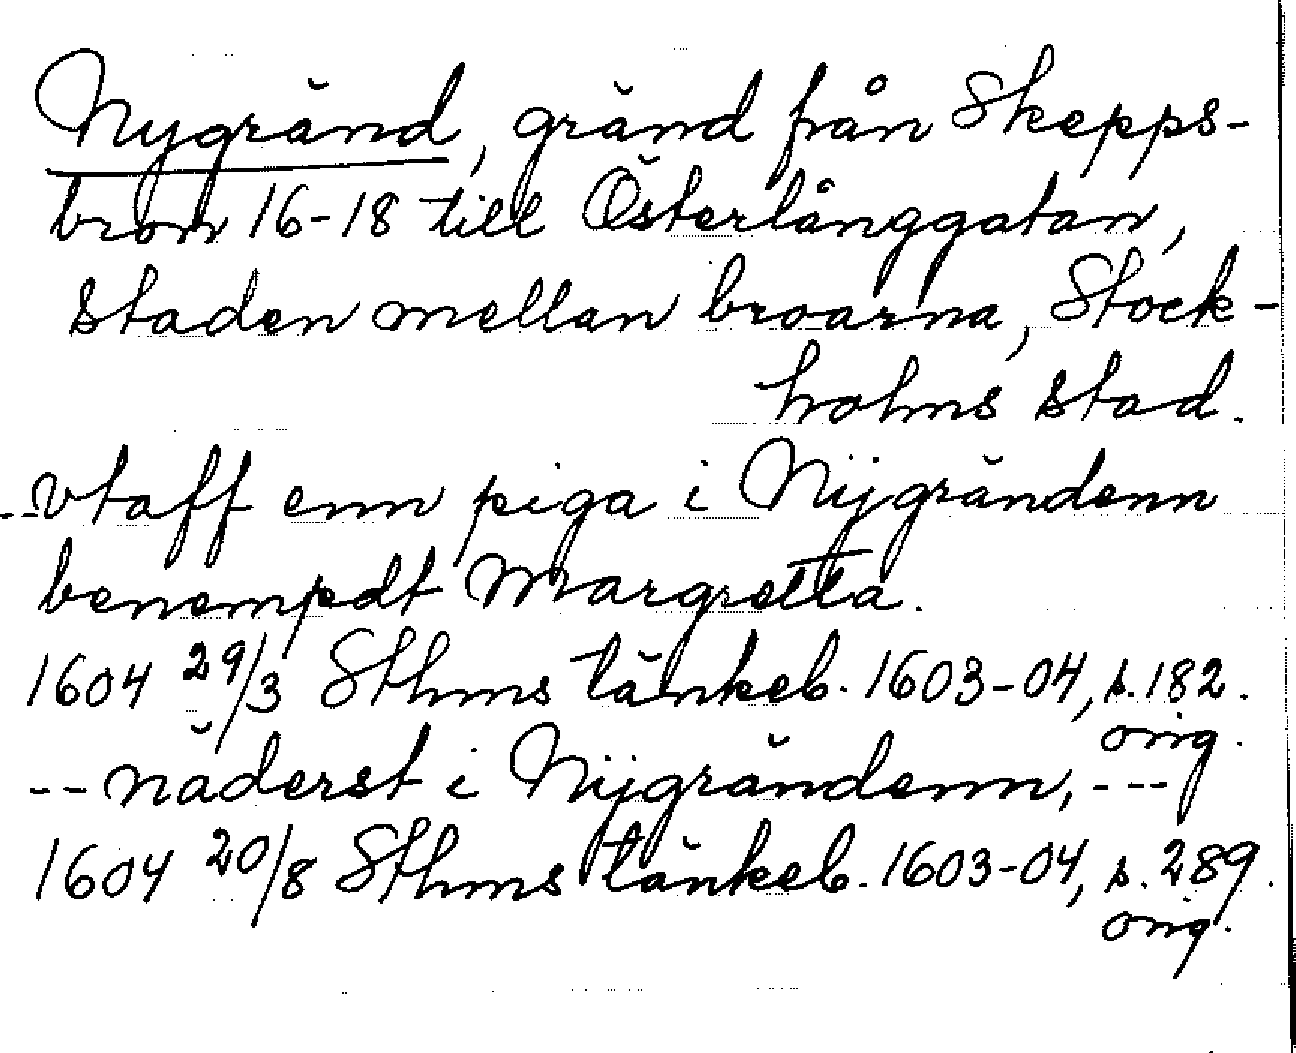 Nygränd, gränd från Skepps-
bron 16-18 till Österlånggatan,
staden mellan broarna, Stock-
holms stad.
--vtaff enn piga i Nijgrändenn
benempdt Margretta.
1604 29/3 Sthms tänkeb. 1603-04, s. 182.
orig.
-- näderst i Nijgrändenn, ---
1604 20/8 Sthms tänkeb. 1603-04, s. 289.
orig.